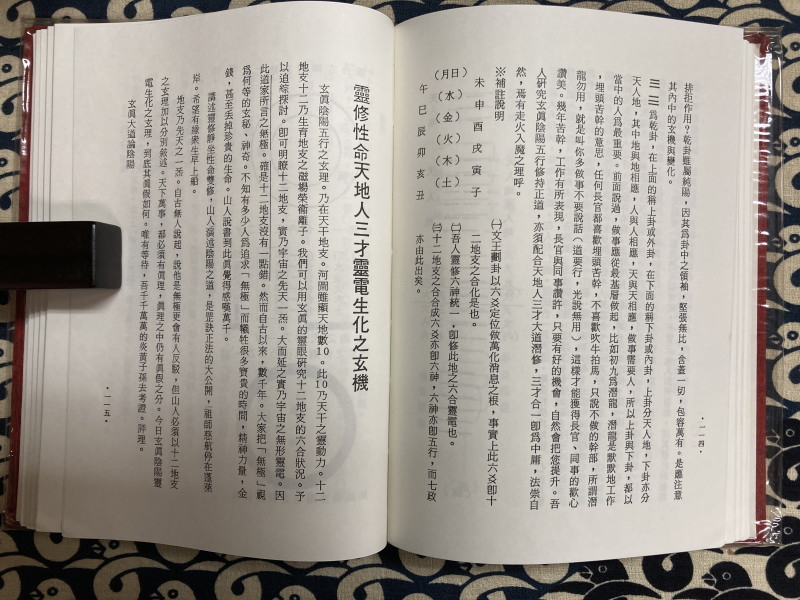 ・一一四・
排拒作用？乾卦雖屬純陽，因其爲卦中之領袖，堅張無比，含蓋一切，包容萬有。是應注意
其內中的玄機與變化。
☰ ☰ 爲乾卦，在上面的稱上卦或外卦，在下面的稱下卦或內卦，上卦分天人地，下卦亦分
天人地，其中地與地相應，人與人相應，天與天相應，做事需要人，所以上卦與下卦，都以
當中的人爲最重要。前面說過，做事應從最基層做起，比如初九爲潛龍，潛龍是默默地工作
，埋頭苦幹的意思，任何長官都喜歡埋頭苦幹，不喜歡吹牛拍馬，只說不做的幹部，所謂潛
龍勿用，就是叫你多做事不要說話（道要行，光說無用），這樣才能獲得長官、同事的歡心
讚美。幾年苦幹，工作有所表現，長官與同事讚許，只要有好的機會，自然會把您提升。吾
人研究玄眞陰陽五行修持正道，亦須配合天地人三才大道潛修，三才合一卽爲中庸，法崇自
然，焉有走火入魔之理呼。
※補註說明
未 申 酉 戌 寅 子
（月日）（水）（金）（火）（木）（土）
午 巳 辰 卯 亥 丑
㈠文王劃卦以六爻定位做萬化消息之根，事實上此六爻卽十
二地支之合化是也。
㈡吾人靈修六神統一，卽修此地之六合靈電也。
㈢十二地支之合合成六爻亦卽六神，六神亦卽五行，而七政
亦由此出矣。
靈修性命天地人三才靈電生化之玄機
玄眞陰陽五行之玄理。乃在天干地支。河圖雖顯天地數10。此10乃天干之靈動力。十二
地支十二乃生育地支之磁場榮衛離子。我們可以用玄眞的靈眼研究十二地支的六合狀況。予
以追綜探討。卽可明瞭十二地支，實乃宇宙之先天一炁。大而延之實乃宇宙之無形靈電。因
此道家所言之無極。確是十二地支沒有一點錯。然而自古以來，數千年。大家把「無極」視
爲何等的玄秘、神奇。不知有多少人爲追求「無極」而犧牲很多寶貴的時間，精神力量，金
錢，甚至丟掉珍貴的生命。山人說書到此眞覺得感嘆萬千。
講述靈修靜坐性命雙修，山人演述陰陽之道，是罡訣正法的大公開，祖師慈航停在蓬萊
岸。希望有緣衆生早上船。
地支乃先天之一炁。自古無人說起，說他是無極更會有人反駁，但山人必須以十二地支
之玄理加以分別敍述。天下萬事，都必須有眞理，眞理之中仍有眞假之分。今日玄眞陰陽靈
電生化之玄理，到底其眞假如何。唯有等待，吾千千萬萬的炎黃子孫去考證。評理。
玄眞大道論陰陽
・一一五・